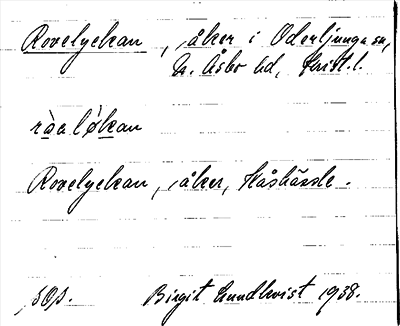 Rovelyckan, åker i Oderljunga sn,
N. Åsbo hd, Krist. l.
ròalø̀kan
Rovelyckan, åker, Håshässle.
sOp. Birgit Lundkvist 1938.